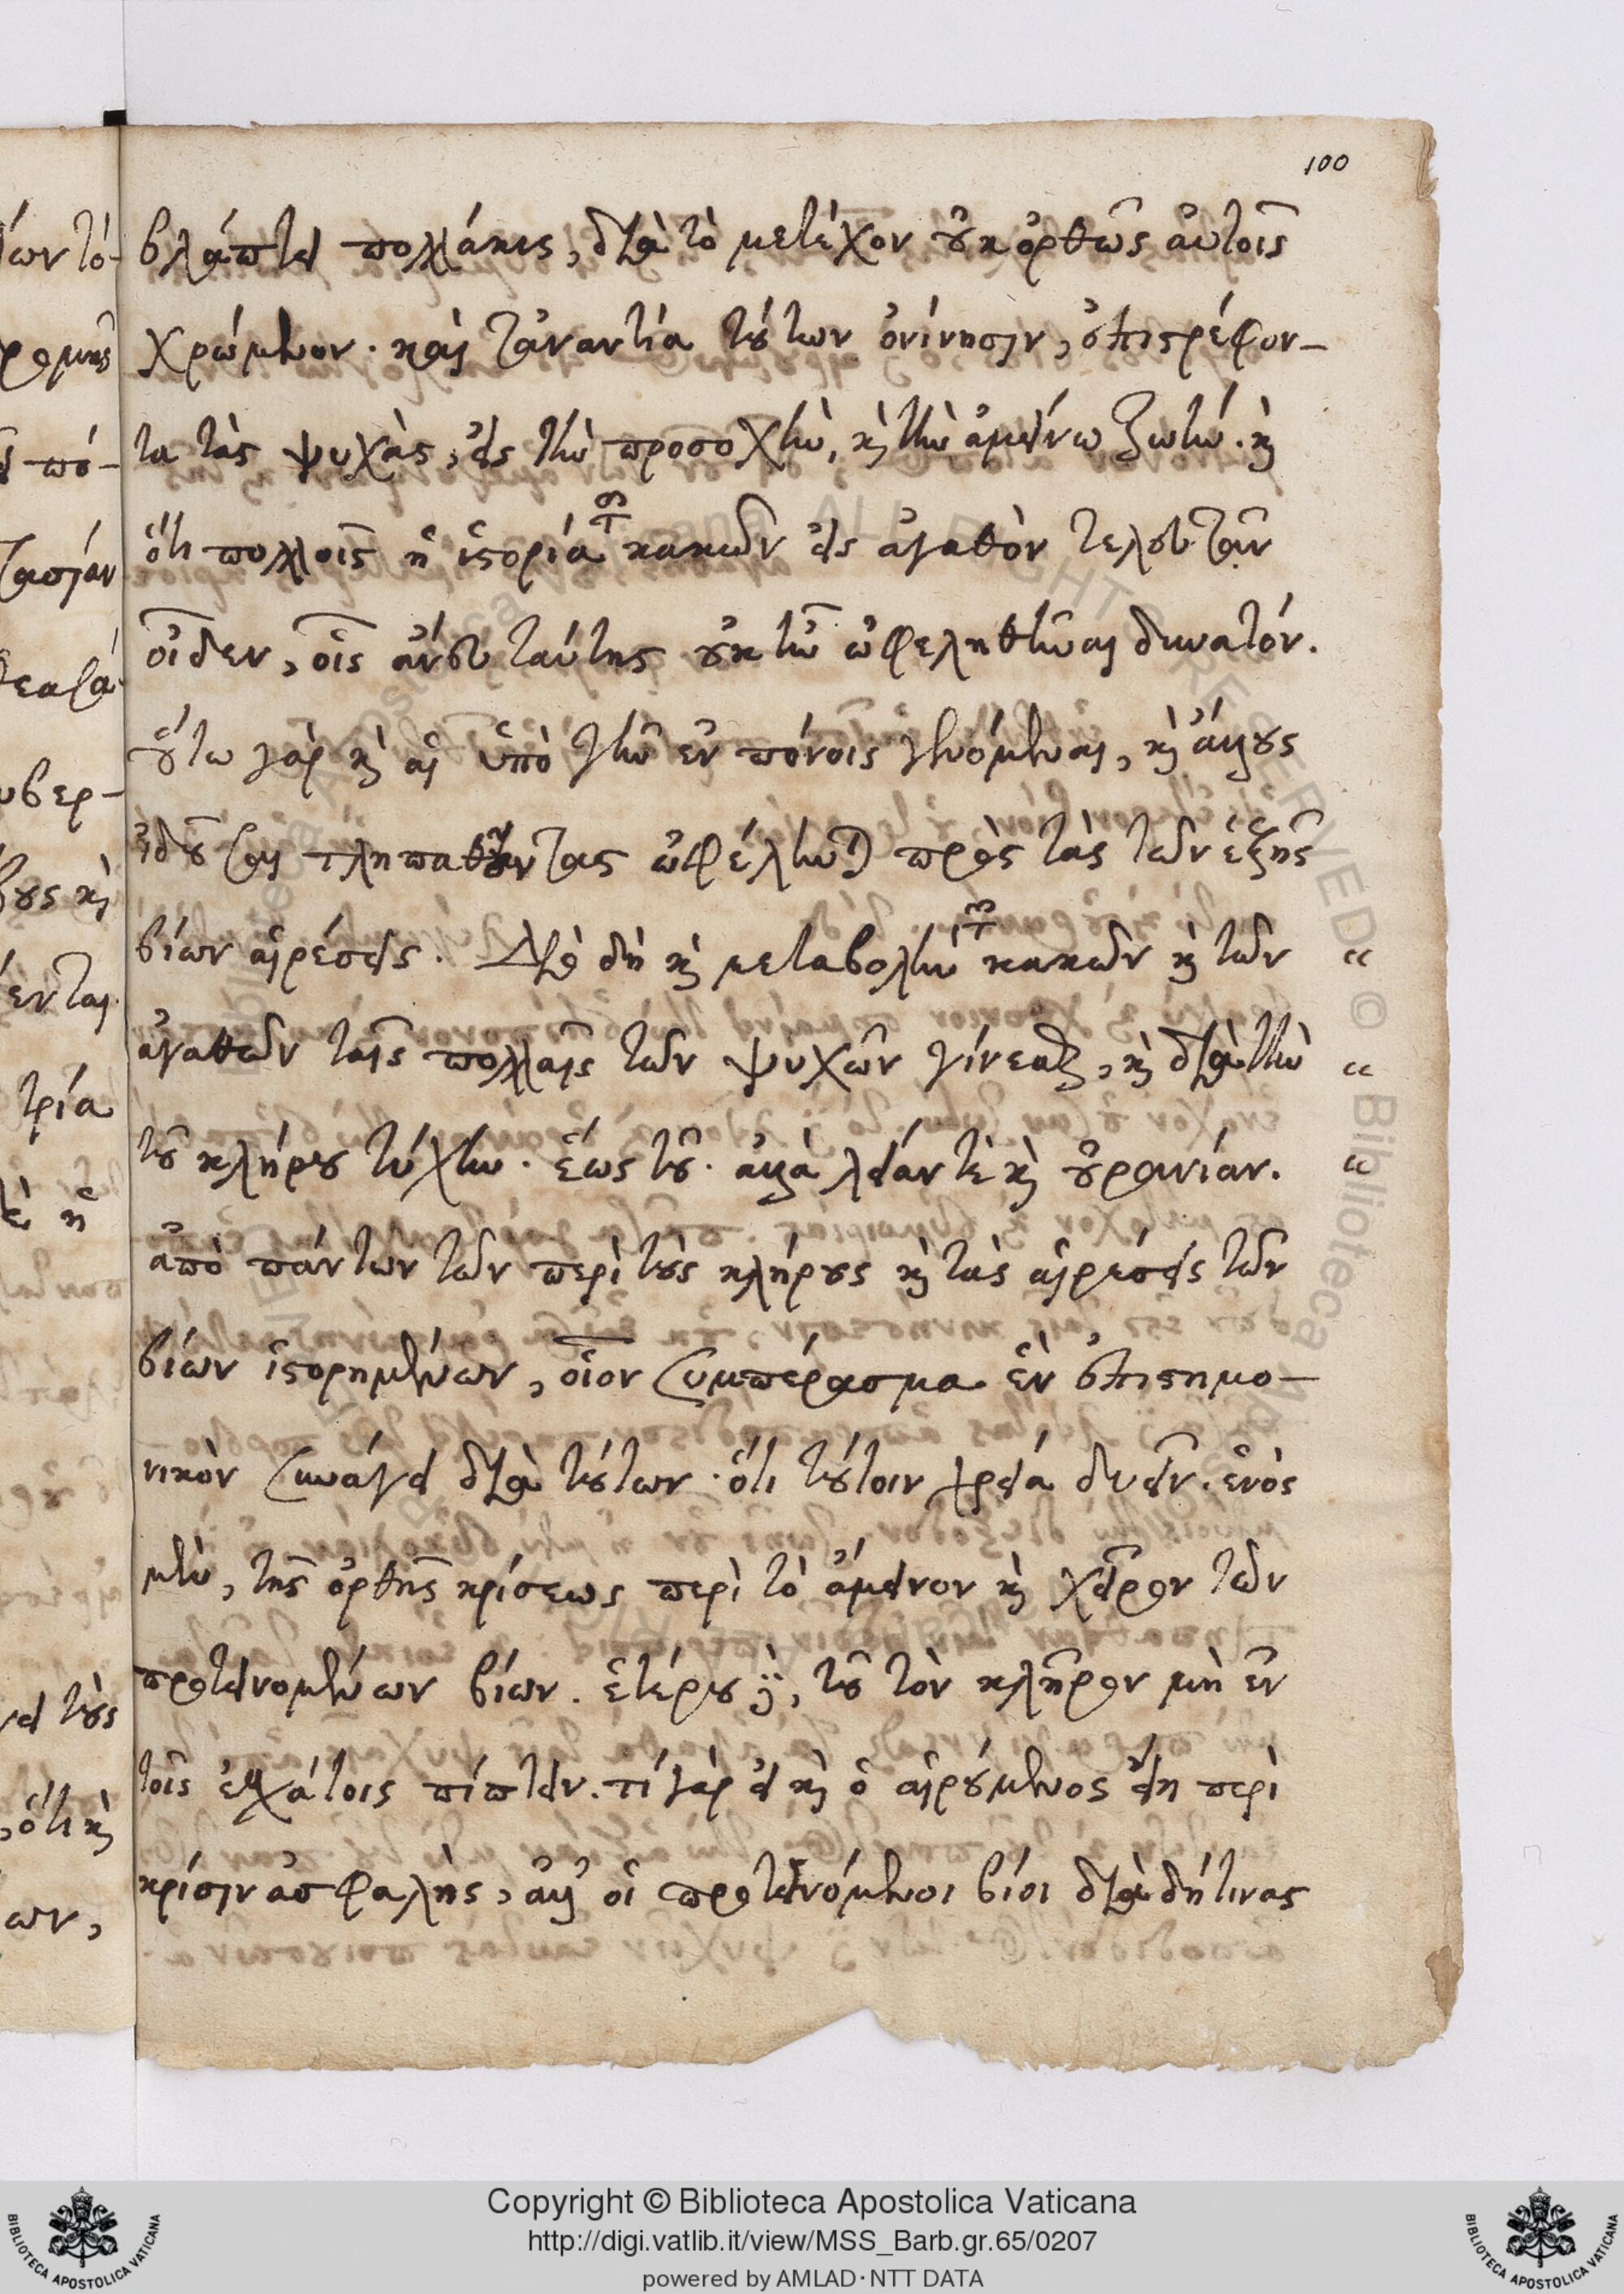 100
βλάπτει πολλάκις, διὰ τὸ μετέχον οὐκ ὀρθῶς αὐτοῖς
χρώμενον. καὶ τἀναντία τούτων ὀνίνησιν, ἐπιστρέφον-
τα τὰς ψυχὰς, εἰς τὴν προσοχὴν, καὶ τὴν ἀμείνω ζωήν. καὶ
ὅτι πολλοῖς ἡ ἱστορία τῶν κακῶν εἰς ἀγαθὸν τελευτᾶν
οἶδεν, οἷς ἄνευ ταύτης οὐκ ἦν ὠφεληθῆναι δυνατόν.
οὕτω γὰρ καὶ αἱ ὑπὸ γῆν ἐν πόνοις γενόμεναι, καὶ ἄλλους
ἰδοῦσαι πληπαθοῦντας ὠφέληνται πρὸς τὰς τῶν ἑξῆς
βίων αἱρέσεις. Διὸ δὴ καὶ μεταβολὴν τῶν κακῶν καὶ τῶν “
ἀγαθῶν ταῖς πολλαῖς τῶν ψυχῶν γίνεσθαι, καὶ διὰ τὴν “
τοῦ κλήρου τύχην. ἕως τοῦ. ἀλλὰ λείαν τὲ καὶ οὐρανίαν. “
ἀπὸ πάντων τῶν περὶ τοὺς κλήρους καὶ τὰς αἱρέσεις τῶν
βίων ἱστορημένων, οἷον συμπέρασμα ἓν ἐπιστημο-
νικὸν συνάγει διὰ τούτων. ὅτι τούτοιν χρεία δυεῖν. ἑνὸς
μὲν, τῆς ὀρθῆς κρίσεως περὶ τὸ ἄμεινον καὶ χεῖρον τῶν
προτεινομένων βίων. ἑτέρου δὲ, τοῦ τὸν κλῆρον μὴ ἐν
τοῖς ἐσχάτοις πίπτειν. τί γὰρ εἰ καὶ ὁ αἱρούμενος εἴη περὶ
κρίσιν ἀσφαλὴς, ἀλλ' οἱ προτεινόμενοι βίοι διὰ δή τινας
Copyright © Biblioteca Apostolica Vaticana
http://digi.vatlib.it/view/MSS_Barb.gr.65/0207
powered by AMLAD·NTT DATA
BIBLIOTECA APOSTOLICA VATICANA
BIBLIOTECA APOSTOLICA VATICANA